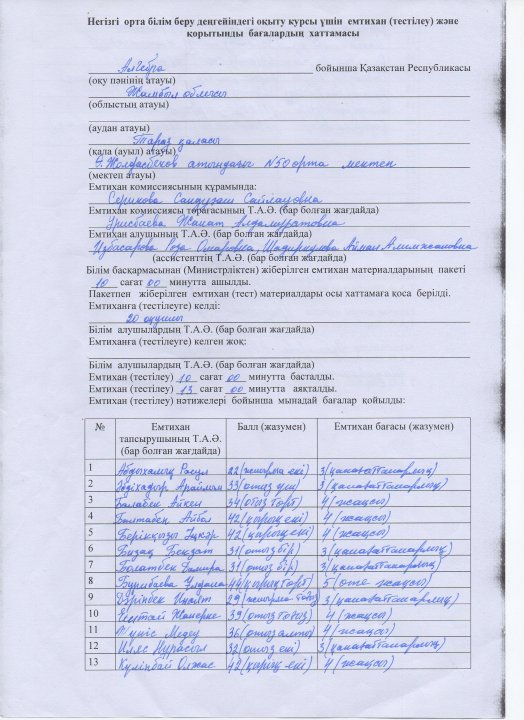 Негізгі орта білім беру деңгейіндегі оқыту курсы үшін емтихан (тестілеу) және
қорытынды бағалардың хаттамасы
Алгебра бойынша Қазақстан Республикасы
(оқу пәнінің атауы)
Жамбыл облысы
(облыстың атауы)
(аудан атауы)
Тараз қаласы
(қала (ауыл) атауы)
Ө. Жолдасбеков атындағы №50 орта мектеп
(мектеп атауы)
Емтихан комиссиясының құрамында:
Серикова Сандуғаш Сайлауовна
Емтихан комиссиясы төрағасының Т.А.Ә. (бар болған жағдайда)
Урисбаева Жанат Алдамуратовна
Емтихан алушының Т.А.Ә. (бар болған жағдайда)
Избасарова Роза Омаровна, Шадиркулова Айман Алимжановна
(ассистенттің Т.А.Ә. (бар болған жағдайда)
Білім басқармасынан (Министрліктен) жіберілген емтихан материалдарының пакеті
10 сағат 00 минутта ашылды.
Пакетпен жіберілген емтихан (тест) материалдары осы хаттамаға қоса берілді.
Емтиханға (тестілеуге) келді:
20 оқушы
Білім алушылардың Т.А.Ә. (бар болған жағдайда)
Емтиханға (тестілеуге) келген жоқ:
Білім алушылардың Т.А.Ә. (бар болған жағдайда)
Емтихан (тестілеу) 10 сағат 00 минутта басталды.
Емтихан (тестілеу) 13 сағат 00 минутта аяқталды.
Емтихан (тестілеу) нәтижелері бойынша мынадай бағалар қойылды:
№ Емтихан тапсырушының Т.А.Ә. (бар болған жағдайда) Балл (жазумен) Емтихан бағасы (жазумен)
1 Абдыхалық Расул 22 (жиырма екі) 3 (қанағаттанарлық)
2 Әдіхадыр Арайлым 33 (отыз үш) 3 (қанағаттанарлық)
3 Балабек Айкен 34 (отыз төрт) 4 (жақсы)
4 Билтабек Айбол 42 (қырық екі) 4 (жақсы)
5 Беріккызы Іңкәр 42 (қырық екі) 4 (жақсы)
6 Бизақ Бекзат 31 (отыз бір) 3 (қанағаттанарлық)
7 Болатбек Дамира 31 (отыз бір) 3 (қанағаттанарлық)
8 Бурибаева Улдана 44 (қырық төрт) 5 (өте жақсы)
9 Дәрібек 29 (жиырма тоғыз) 3 (қанағаттанарлық)
10 Ермтай Жанерке 39 (отыз тоғыз) 4 (жақсы)
11 Медеу 36 (отыз алты) 4 (жақсы)
12 Иляс Нурасыл 32 (отыз екі) 3 (қанағаттанарлық)
13 Кулінбай Олжас 42 (қырық екі) 4 (жақсы)